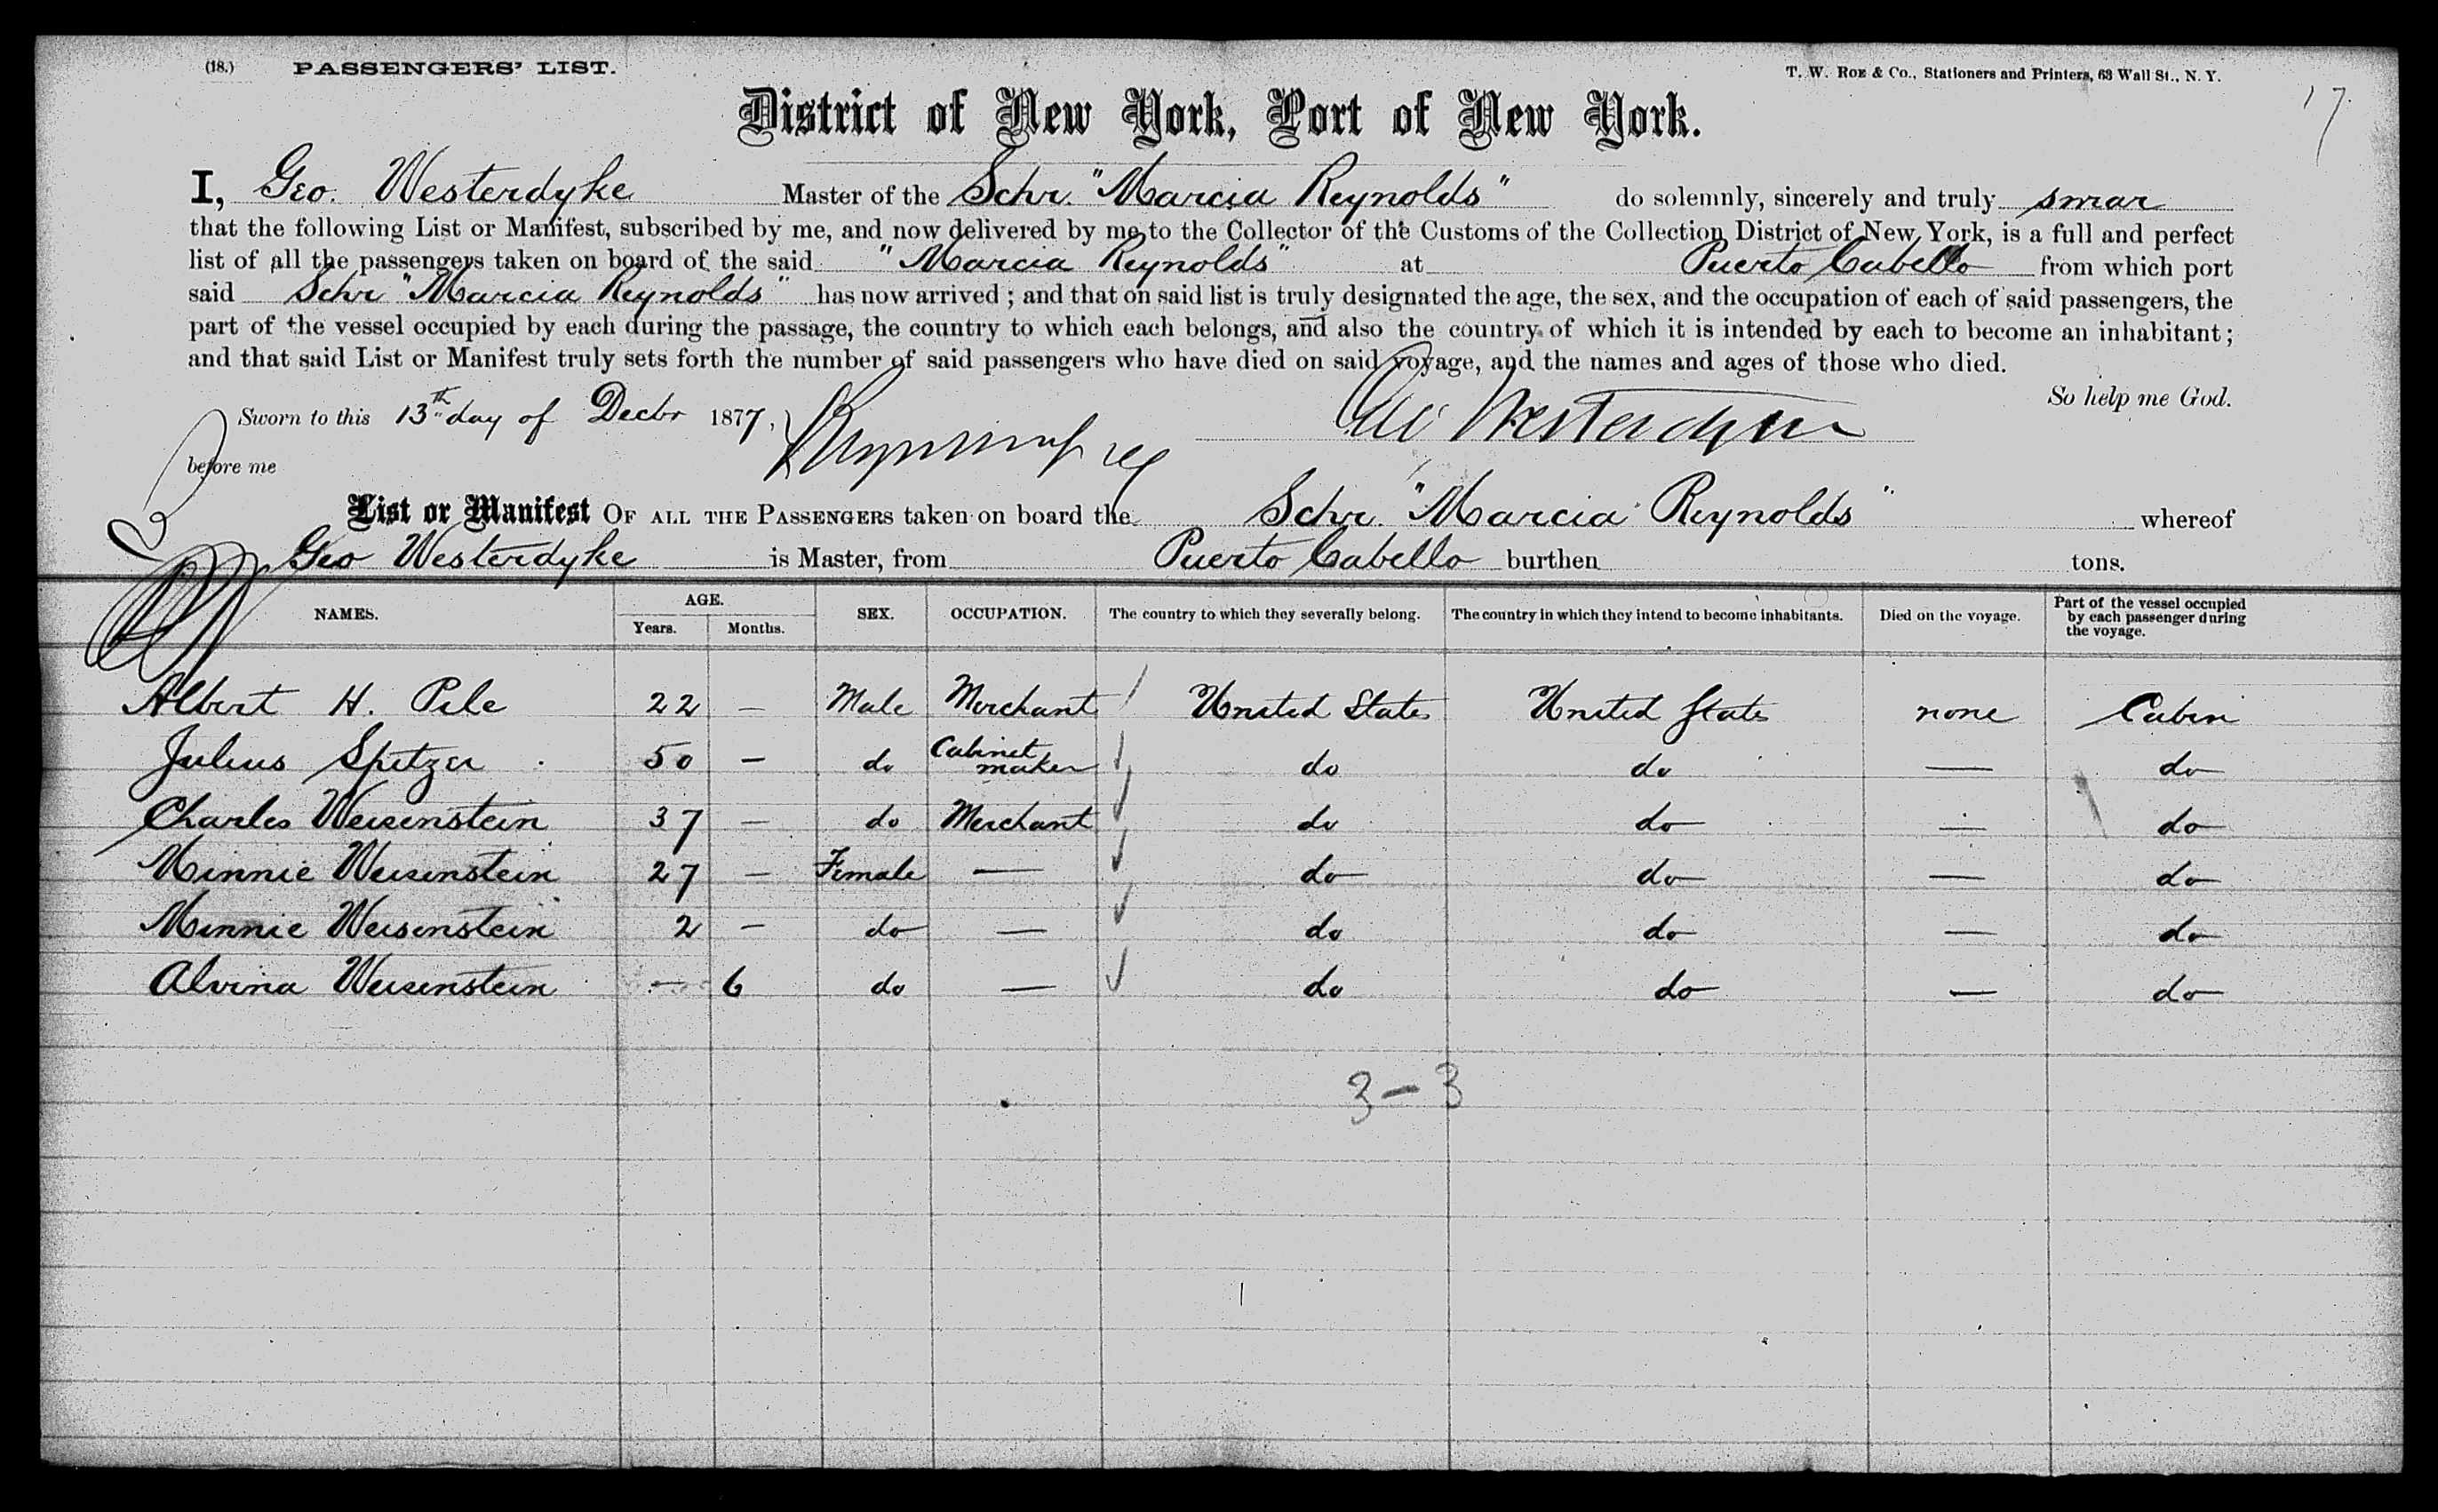 (18.) PASSENGERS' LIST. T. W. ROE & Co., Stationers and Printers, 63 Wall St., N. Y.
17
District of New York, Port of New York.
I, Geo. Westerdyke Master of the Schr. "Marcia Reynolds" do solemnly, sincerely and truly swear
that the following List or Manifest, subscribed by me, and now delivered by me to the Collector of the Customs of the Collection District of New York, is a full and perfect
list of all the passengers taken on board of the said "Marcia Reynolds" at Puerto Cabello from which port
said Schr "Marcia Reynolds" has now arrived; and that on said list is truly designated the age, the sex, and the occupation of each of said passengers, the
part of the vessel occupied by each during the passage, the country to which each belongs, and also the country of which it is intended by each to become an inhabitant;
and that said List or Manifest truly sets forth the number of said passengers who have died on said voyage, and the names and ages of those who died.
So help me God.
Sworn to this 13th day of Decbr 1877, Geo Westerdyke
before me
List or Manifest OF ALL THE PASSENGERS taken on board the Schr. "Marcia Reynolds" whereof
Geo Westerdyke is Master, from Puerto Cabello burthen tons.
NAMES. AGE. Years. Months. SEX. OCCUPATION. The country to which they severally belong. The country in which they intend to become inhabitants. Died on the voyage. Part of the vessel occupied by each passenger during the voyage.
Albert H. Pile 22 — Male Merchant United States United States none Cabin
Julius Spitzer 50 — do Cabinet maker do do — do
Charles Weisenstein 37 — do Merchant do do — do
Minnie Weisenstein 27 — Female — do do — do
Minnie Weisenstein 2 — do — do do — do
Alvina Weisenstein — 6 do — do do — do
3 - 3